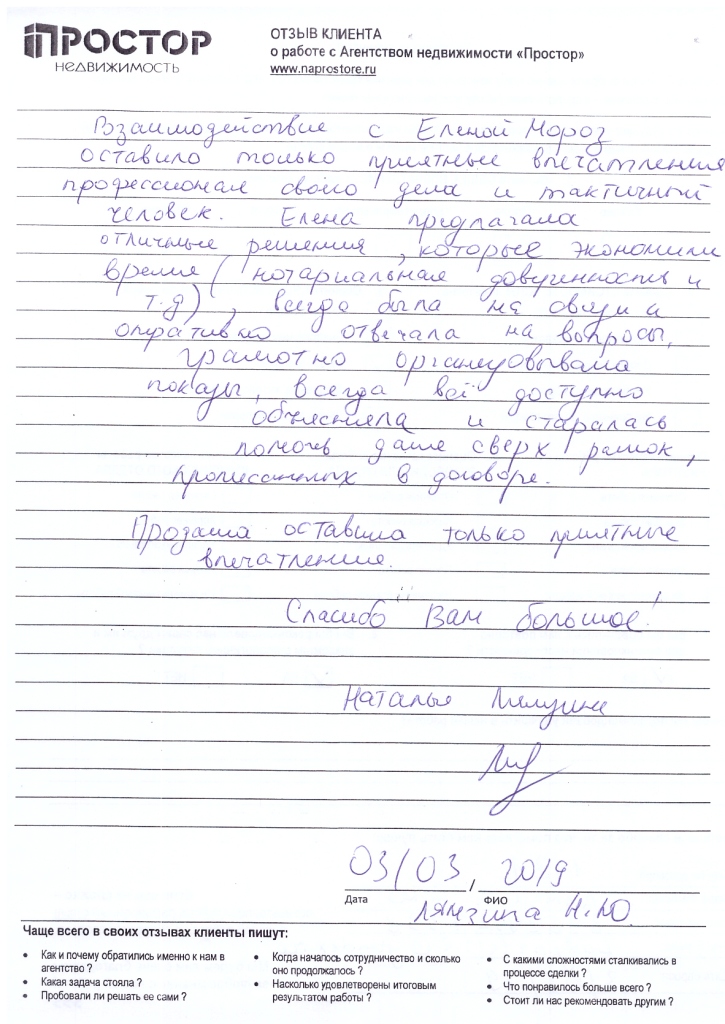 ПРОСТОР
НЕДВИЖИМОСТЬ
ОТЗЫВ КЛИЕНТА
о работе с Агентством недвижимости «Простор»
www.naprostore.ru
Взаимодействие с Еленой Мороз
оставило только приятные впечатления
профессионал своего дела и тактичный
человек. Елена предлагала
отличные решения, которые экономили
время (нотариальная доверенность и
т.д), всегда была на связи и
оперативно отвечала на вопросы,
грамотно организовывала
показы, всегда всё доступно
объясняла и старалась
помочь даже сверх рамок,
прописанных в договоре.
Продажа оставила только приятные
впечатления.
Спасибо Вам большое!
Наталья
03/03, 2019
Дата / ФИО
Лямзина Н.Ю.
Чаще всего в своих отзывах клиенты пишут:
• Как и почему обратились именно к нам в агентство ?
• Какая задача стояла ?
• Пробовали ли решать ее сами ?
• Когда началось сотрудничество и сколько оно продолжалось ?
• Насколько удовлетворены итоговым результатом работы ?
• С какими сложностями сталкивались в процессе сделки ?
• Что понравилось больше всего ?
• Стоит ли нас рекомендовать другим ?